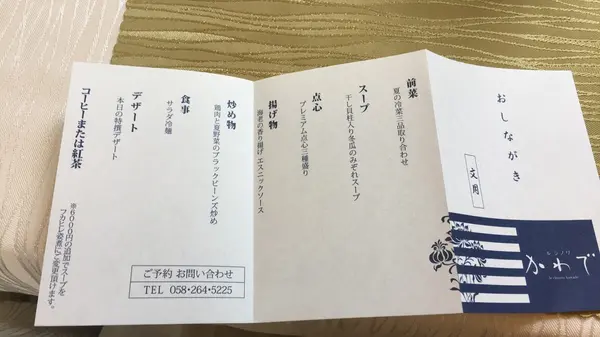 おしながき
文月
かわで
前菜
夏の冷菜三品取り合わせ
スープ
干し貝柱入り冬瓜のみぞれスープ
点心
プレミアム点心三種盛り
揚げ物
海老の香り揚げ エスニックソース
炒め物
鶏肉と夏野菜のブラックビーンズ炒め
食事
サラダ冷麺
デザート
本日の特撰デザート
コーヒーまたは紅茶
※6000円の追加でスープを
フカヒレ姿煮にご変更頂けます。
ご予約 お問い合わせ
TEL 058・264・5225